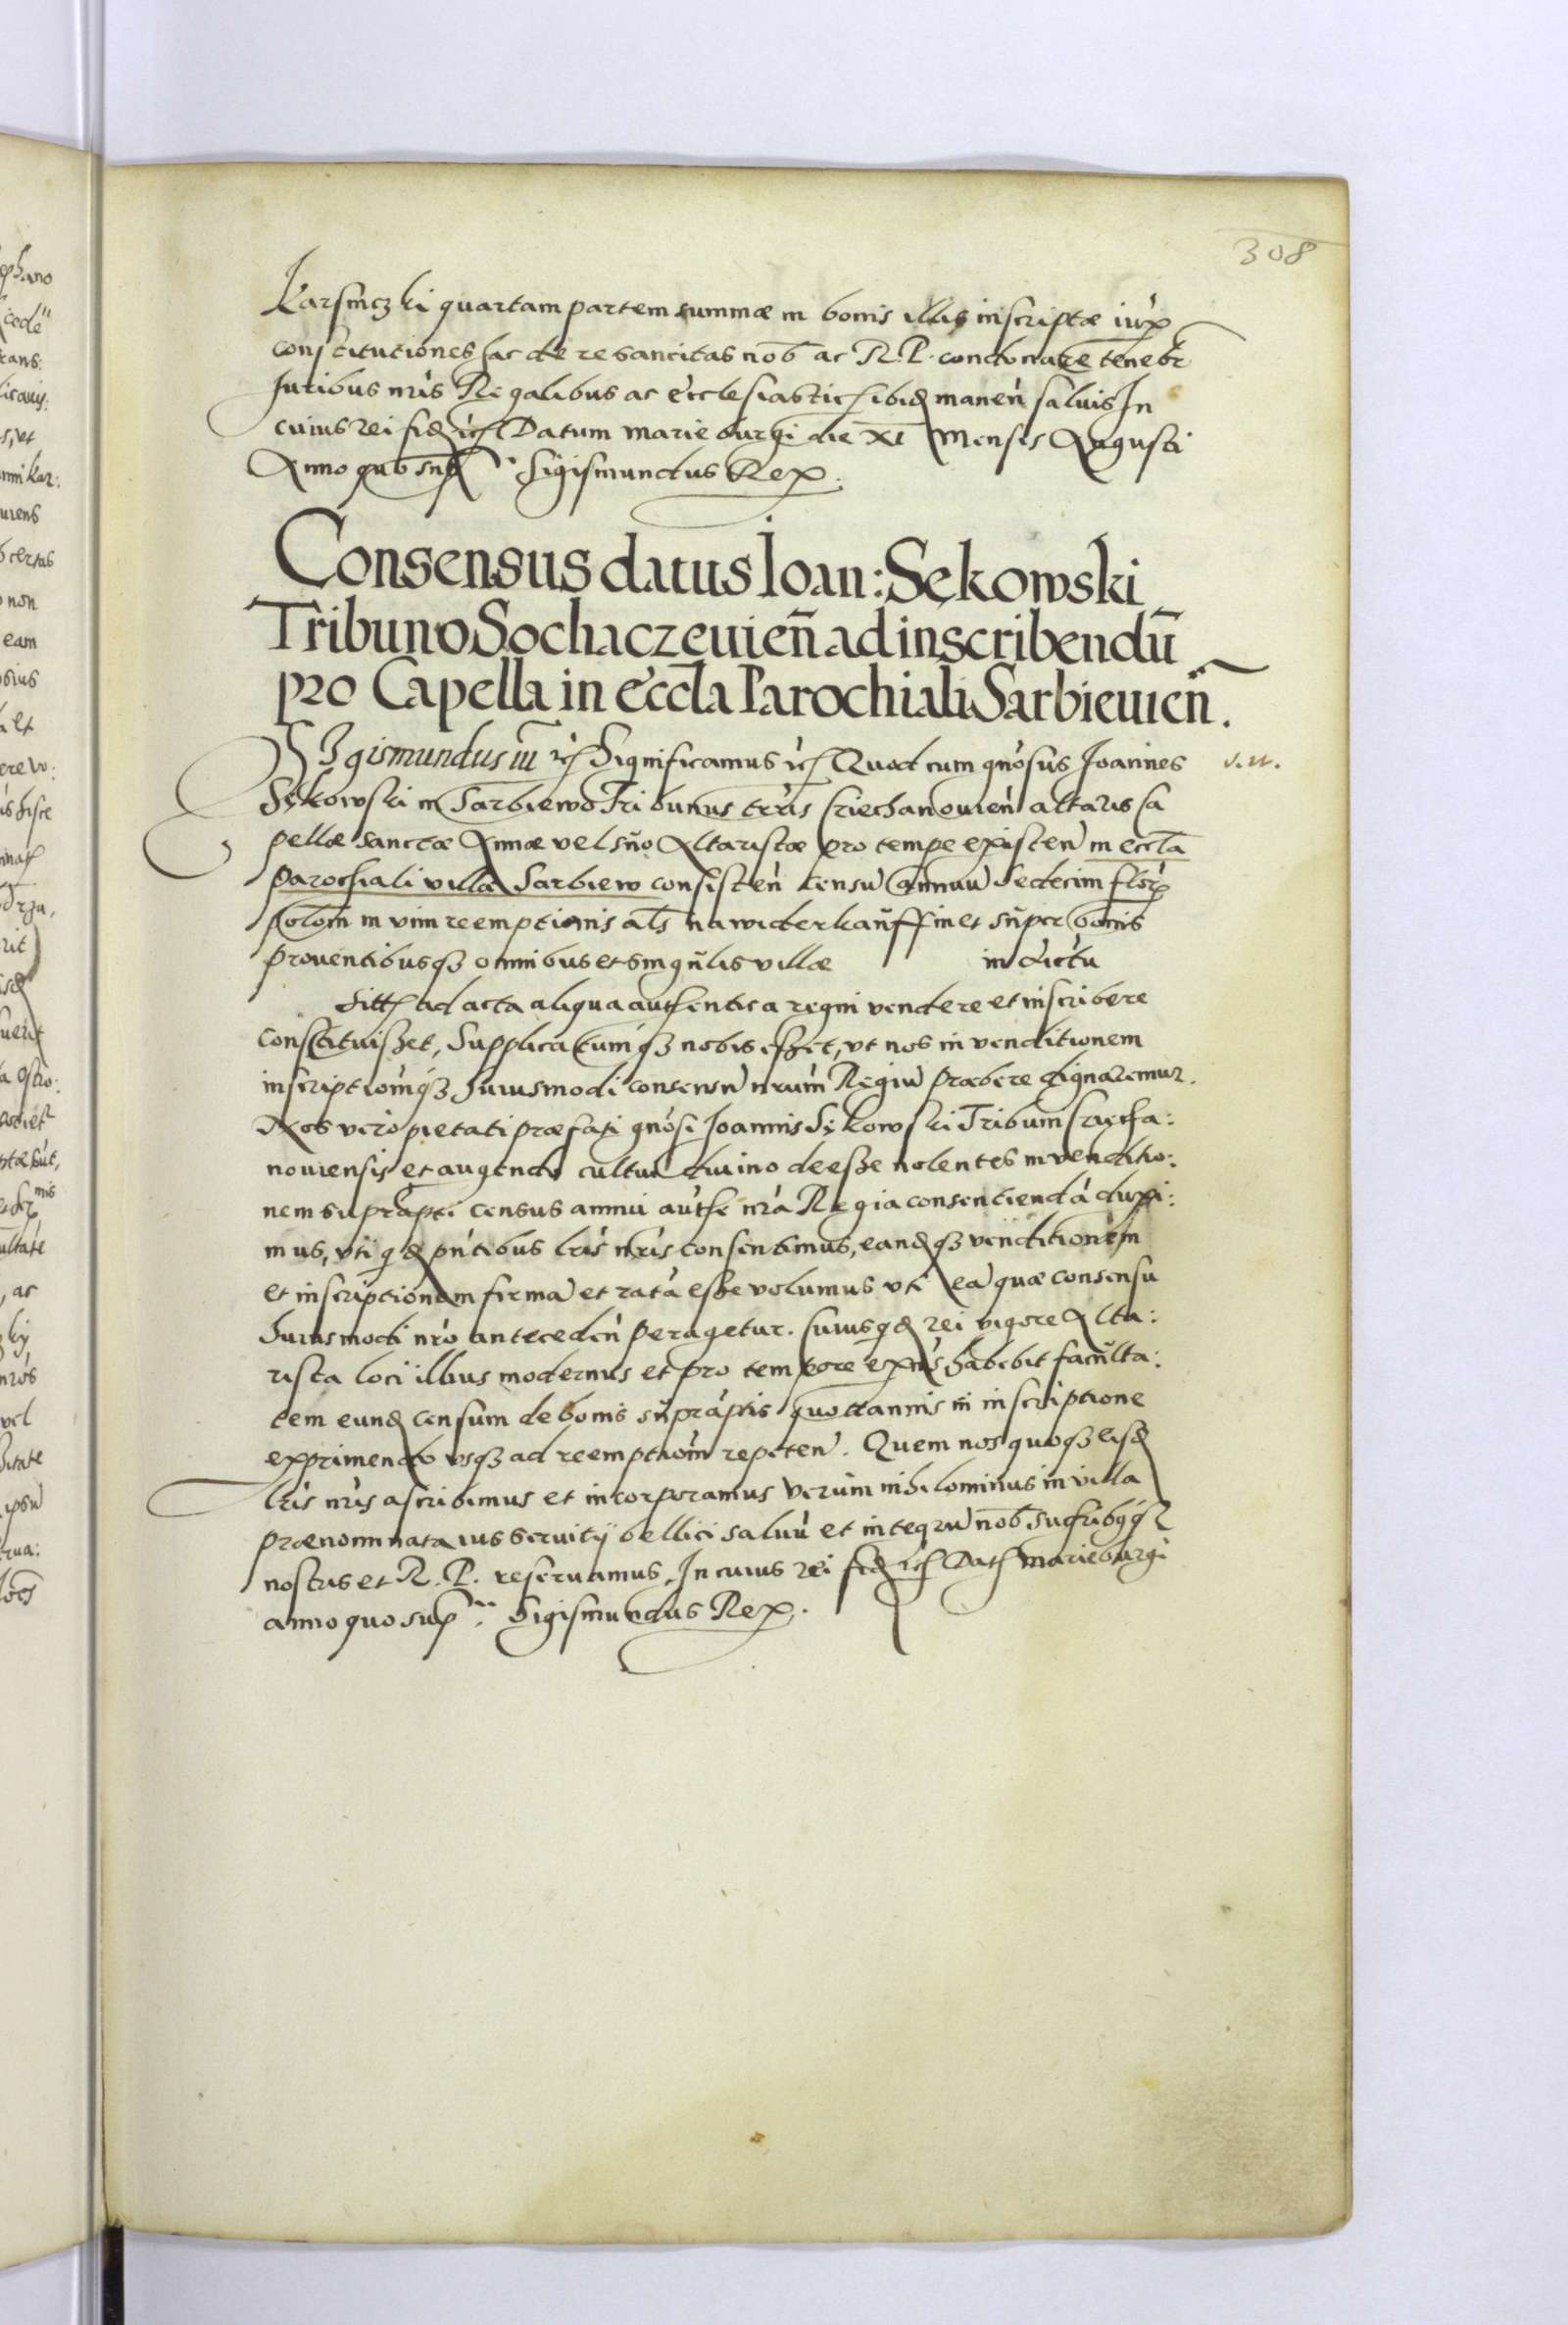 308
Karsniczki quartam partem summæ in bonis illis inscriptæ iux
constitutiones hac de re sancitas nob ac R. P. condonare tenebr
Juribus nris Regalibus ac Ecclesiastic ibid manen salvis In
cuius rei fid etc Datum Marieburgi die XI Mensis Augusti
Anno quo sup Sigismundus Rex.
Consensus datus Ioan: Sękowski
Tribuno Sochaczeuień ad inscribendū
pro Capella in eccla Parochiali Sarbieuień.
Sigismundus iii etc Significamus etc Quod cum gnosus Joannes
s. n.
Sękowski in Sarbiewo Tribunus terris Ciechanouien altaris Ca
pellæ Sanctæ Annæ vel suo Altaristæ pro tempe existen in eccla
parochiali villæ Sarbiew consisten censu annuu sedecim flor
polon in vim reemptionis als na widerkauff in et super bonis
prouentibusq omnibus et singulis villæ in dictu
sitt ad acta aliqua authentica regni vendere et inscribere
constituisset, Supplicatumq nobis esset, vt nos in venditionem
inscriptionq huiusmodi consensu nrum Regiu præbere dignaremur.
Nos vero pietati præfati gnosi Joannis Sękowski Tribuni Ciecha:
nouiensis et augendo cultui diuino deesse nolentes in venditio:
nem suprapti census annui authe nra Regia consentienda duxi:
mus, vti qd pntibus lris nris consentimus, eandq venditionem
et inscriptionem firma et rata esse volumus vti ea quæ consensu
huiusmodi nro anteceden peragetur. Cuius qd rei vigore Alta:
rista loci illius modernus et pro tempore exns habebit faculta:
tem eund censum de bonis supraptis quottannis in inscriptione
exprimendo vsq ad reemptiom repeten. Quem nos quoq eisd
lris nris ascribimus et incorporamus verum nihilominus in villa
prænominata ius seruitij bellici saluu et integru nob sucribq
nostris et R. P. reseruamus. In cuius rei fid etc Dat Marieburgi
anno quo sup Sigismundus Rex.